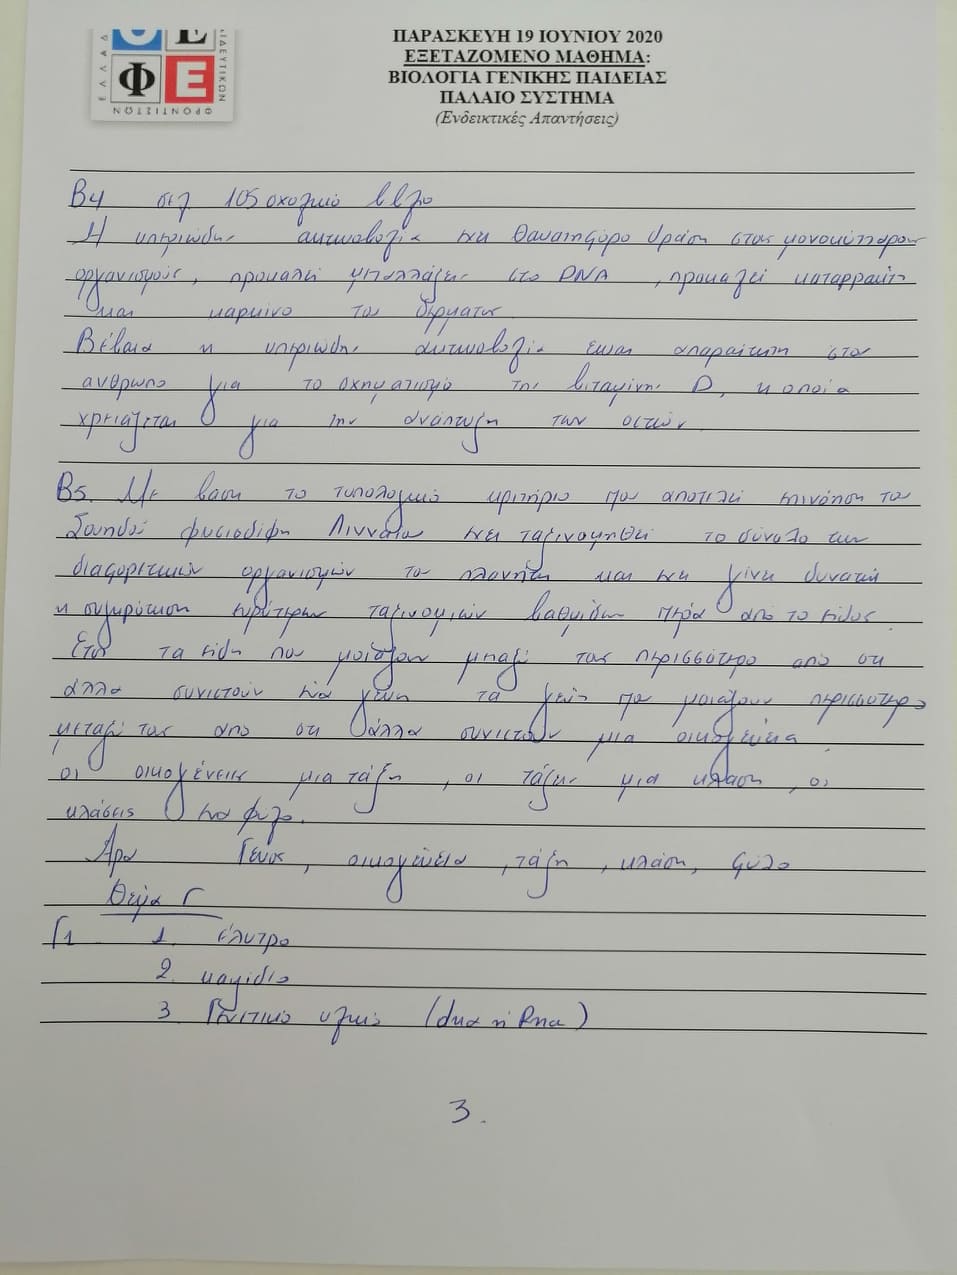 ΠΑΡΑΣΚΕΥΗ 19 ΙΟΥΝΙΟΥ 2020
ΕΞΕΤΑΖΟΜΕΝΟ ΜΑΘΗΜΑ:
ΒΙΟΛΟΓΙΑ ΓΕΝΙΚΗΣ ΠΑΙΔΕΙΑΣ
ΠΑΛΑΙΟ ΣΥΣΤΗΜΑ
(Ενδεικτικές Απαντήσεις)
ΟΕ
ΦΕ
ΕΛΛΑΔ
ΙΔΕΥΤΙΚΩΝ
ΦΡΟΝΤΙΣΤΩΝ
Β4 σελ 105 σχολικό βιβλίο
Η υπεριώδης ακτινοβολία έχει θανατηφόρο δράση στους μονοκύτταρους
οργανισμούς, προκαλεί μεταλλάξεις στο DNA, προκαλεί καταρράκτη
και καρκίνο του δέρματος
Βέβαια η υπεριώδης ακτινοβολία είναι απαραίτητη στον
άνθρωπο για το σχηματισμό της βιταμίνης D, η οποία
χρειάζεται για την ανάπτυξη των οστών
Β5. Με βάση το τυπολογικό κριτήριο που αποτελεί επινόηση του
Σουηδού φυσιοδίφη Λινναίου έχει ταξινομηθεί το σύνολο των
διαφορετικών οργανισμών του πλανήτη και έχει γίνει δυνατή
η συγκρότηση ευρύτερων ταξινομικών βαθμίδων πέρα από το είδος.
Έτσι τα είδη που μοιάζουν μεταξύ τους περισσότερο από ότι
άλλα συνιστούν ένα γένος τα γένη που μοιάζουν περισσότερο
μεταξύ τους από ότι άλλα συνιστούν μια οικογένεια
οι οικογένειες μια τάξη, οι τάξεις μια κλάση, οι
κλάσεις ένα φύλο.
Άρα Γένος, οικογένεια, τάξη, κλάση, φύλο
Θέμα Γ
Γ1 1. έλυτρο
2. καψίδιο
3. Γενετικό υλικό (dna ή Rna)
3.